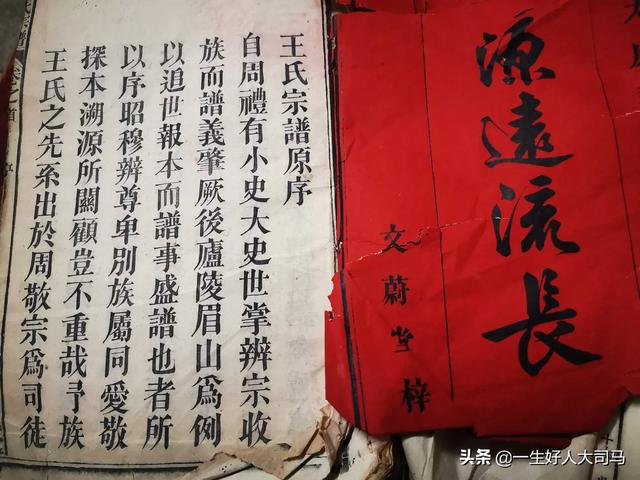 源遠流長
文蔚坣梓
王氏宗譜原序
自周禮有小史大史世掌辨宗收
族而譜義肇厥後廬陵眉山爲例
以追世報本而譜事盛譜也者所
以序昭穆辨尊卑別族屬同愛敬
探本溯源所關顧豈不重哉予族
王氏之先系出於周敬宗爲司徒
氏宗譜
卷之首
頭条 @一生好人大司马